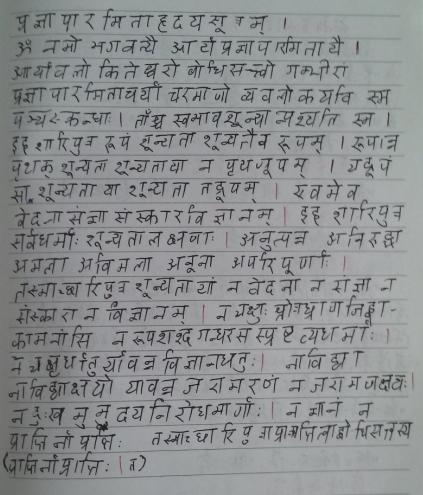 प्रज्ञापारमिताहृदयसूत्रम् ।
ॐ नमो भगवत्यै आर्याप्रज्ञापारमितायै ।
आर्यावलोकितेश्वरो बोधिसत्त्वो गम्भीरां
प्रज्ञापारमिताचर्यां चरमाणो व्यवलोकयति स्म
पञ्चस्कन्धाः । तांश्च स्वभावशून्यान्पश्यति स्म ।
इह शारिपुत्र रूपं शून्यता शून्यतैव रूपम् । रूपान्न
पृथक् शून्यता शून्यताया न पृथग्रूपम् । यद्रूपं
सा शून्यता या शून्यता तद्रूपम् । एवमेव
वेदनासंज्ञासंस्कारविज्ञानम् । इह शारिपुत्र
सर्वधर्माः शून्यतालक्षणाः । अनुत्पन्न अनिरुद्धा
अमला अविमला अनूना अपरिपूर्णाः ।
तस्माच्छारिपुत्र शून्यतायां न वेदना न संज्ञा न
संस्कारा न विज्ञानम् । न चक्षुः श्रोत्रघ्राणजिह्वा-
कामनांसि न रूपशब्दगन्धरस
न चक्षुर्धातुर्यावन्न विज्ञानधतुः । नाविद्या
नाविद्याक्षयो यावन्न जरामरणं न जरामरणक्षयः
न दुःखसमुदयनिरोधमार्गाः । न ज्ञानं न
प्राप्तिर्नाप्राप्तिः
(प्राप्तिर्नाप्राप्तिः ।